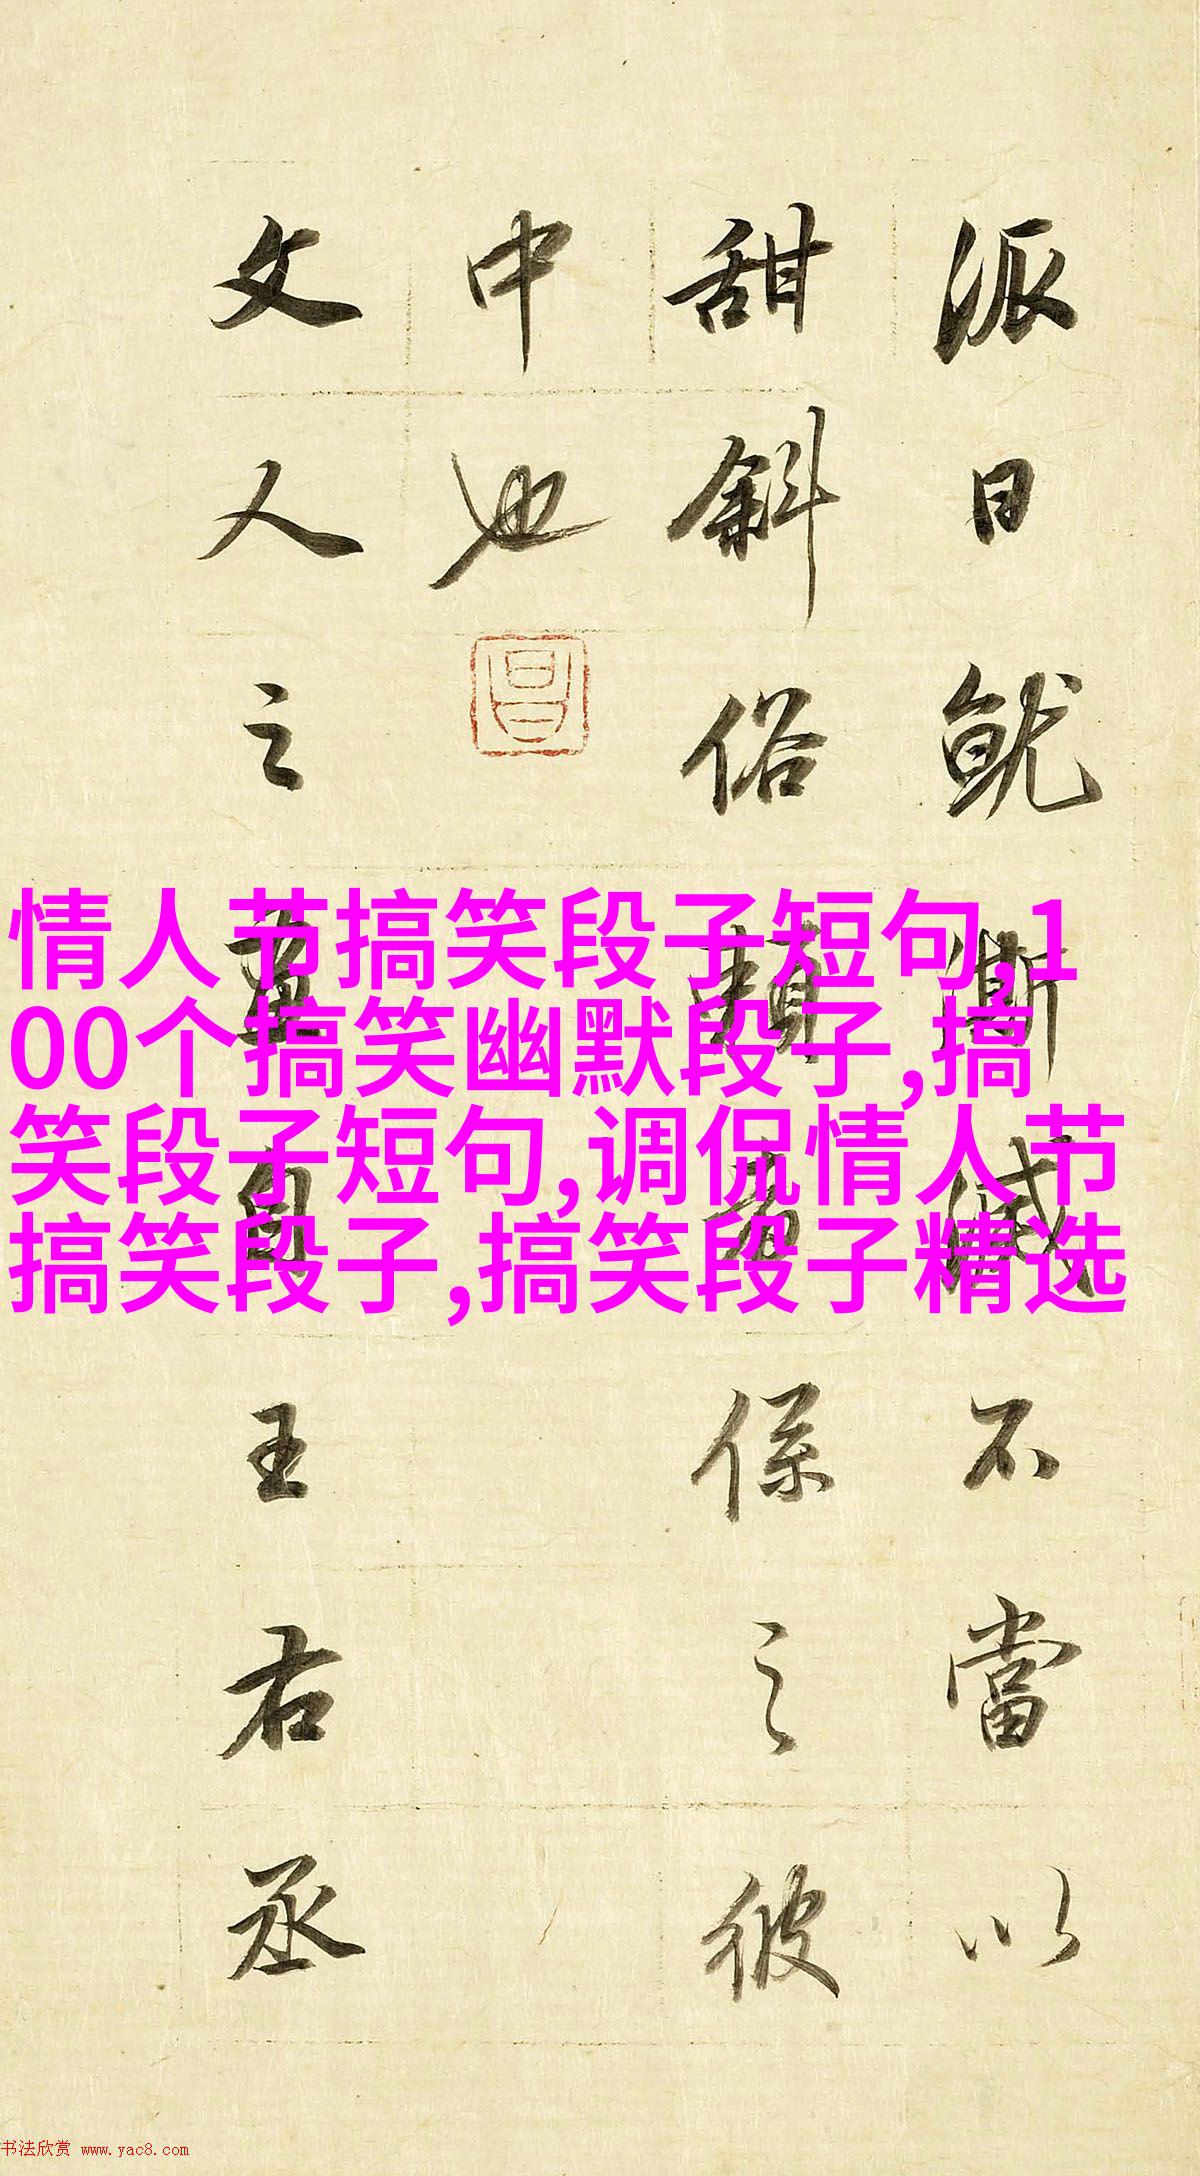 派日就澌滅不當以
甜斜俗賴者係之彼
中也
昌
文人之畫自王右丞
情人节搞笑段子短句,1
00个搞笑幽默段子,搞
笑段子短句,调侃情人节
搞笑段子,搞笑段子精选
书法欣赏 www.yac8.com